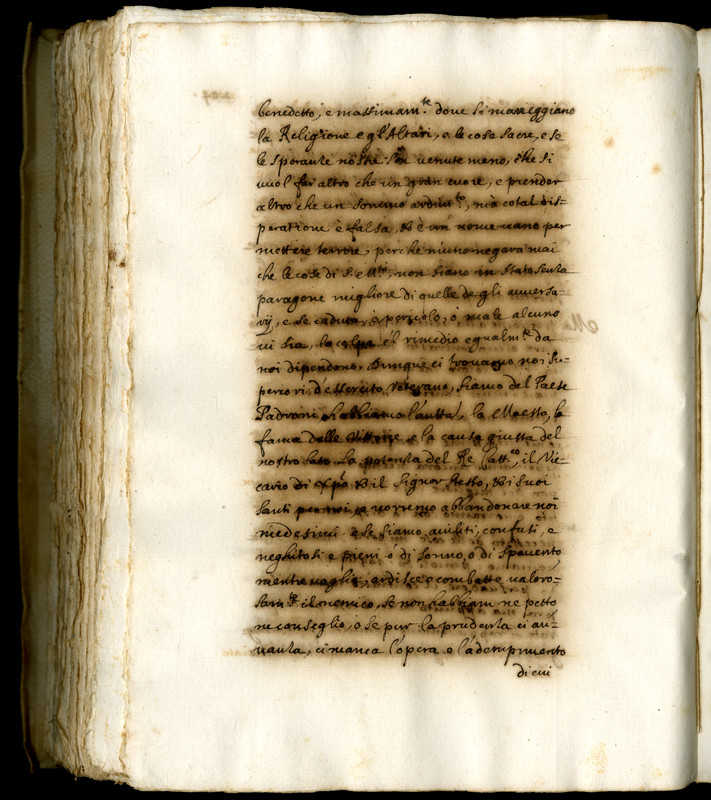 benedetto, e massimam.te doue si maneggiano
la Religione e gl'Altari, e le cose sacre, e se
le speranze nostre son uenute meno, che si
vuol far altro che un gran cuore, e prender
altro che un sommo ardim.to, mà cotal dis=
peratione è falsa, et è un nome uano per
mettere terrore, perche niuno negarà mai
che le cose di S. M.tà non siano in stato senza
paragone migliore di quelle degli auuersa-
rij, e se caduta, ò pericolo, ò male alcuno
ui sia, la colpa e'l rimedio egualm.te da
noi dipendono. Dunque ci trouiamo noi su-
periori d'essercito Veterano, siamo del Paese
Padroni, habbiamo l'autta, la Maestà, la
fama delle Vittorie, e la causa giusta del
nostro lato. La potenza del Rè Catt.co, il Vi-
cario di Xpo et il Signor stesso, et i suoi
santi per noi, e uorremo abbandonare noi
medesimi. e se siamo auiliti, confusi, e
neghitosi e pieni ò di sonno, ò di spauento,
mentre ueglia, ardisce e combatte ualoro=
sam.te il nemico, se non habbiam ne petto
ne conseglio, o se pur la prudenza ci au-
uanza, ci manca l'opera e l'adempimento
di cui